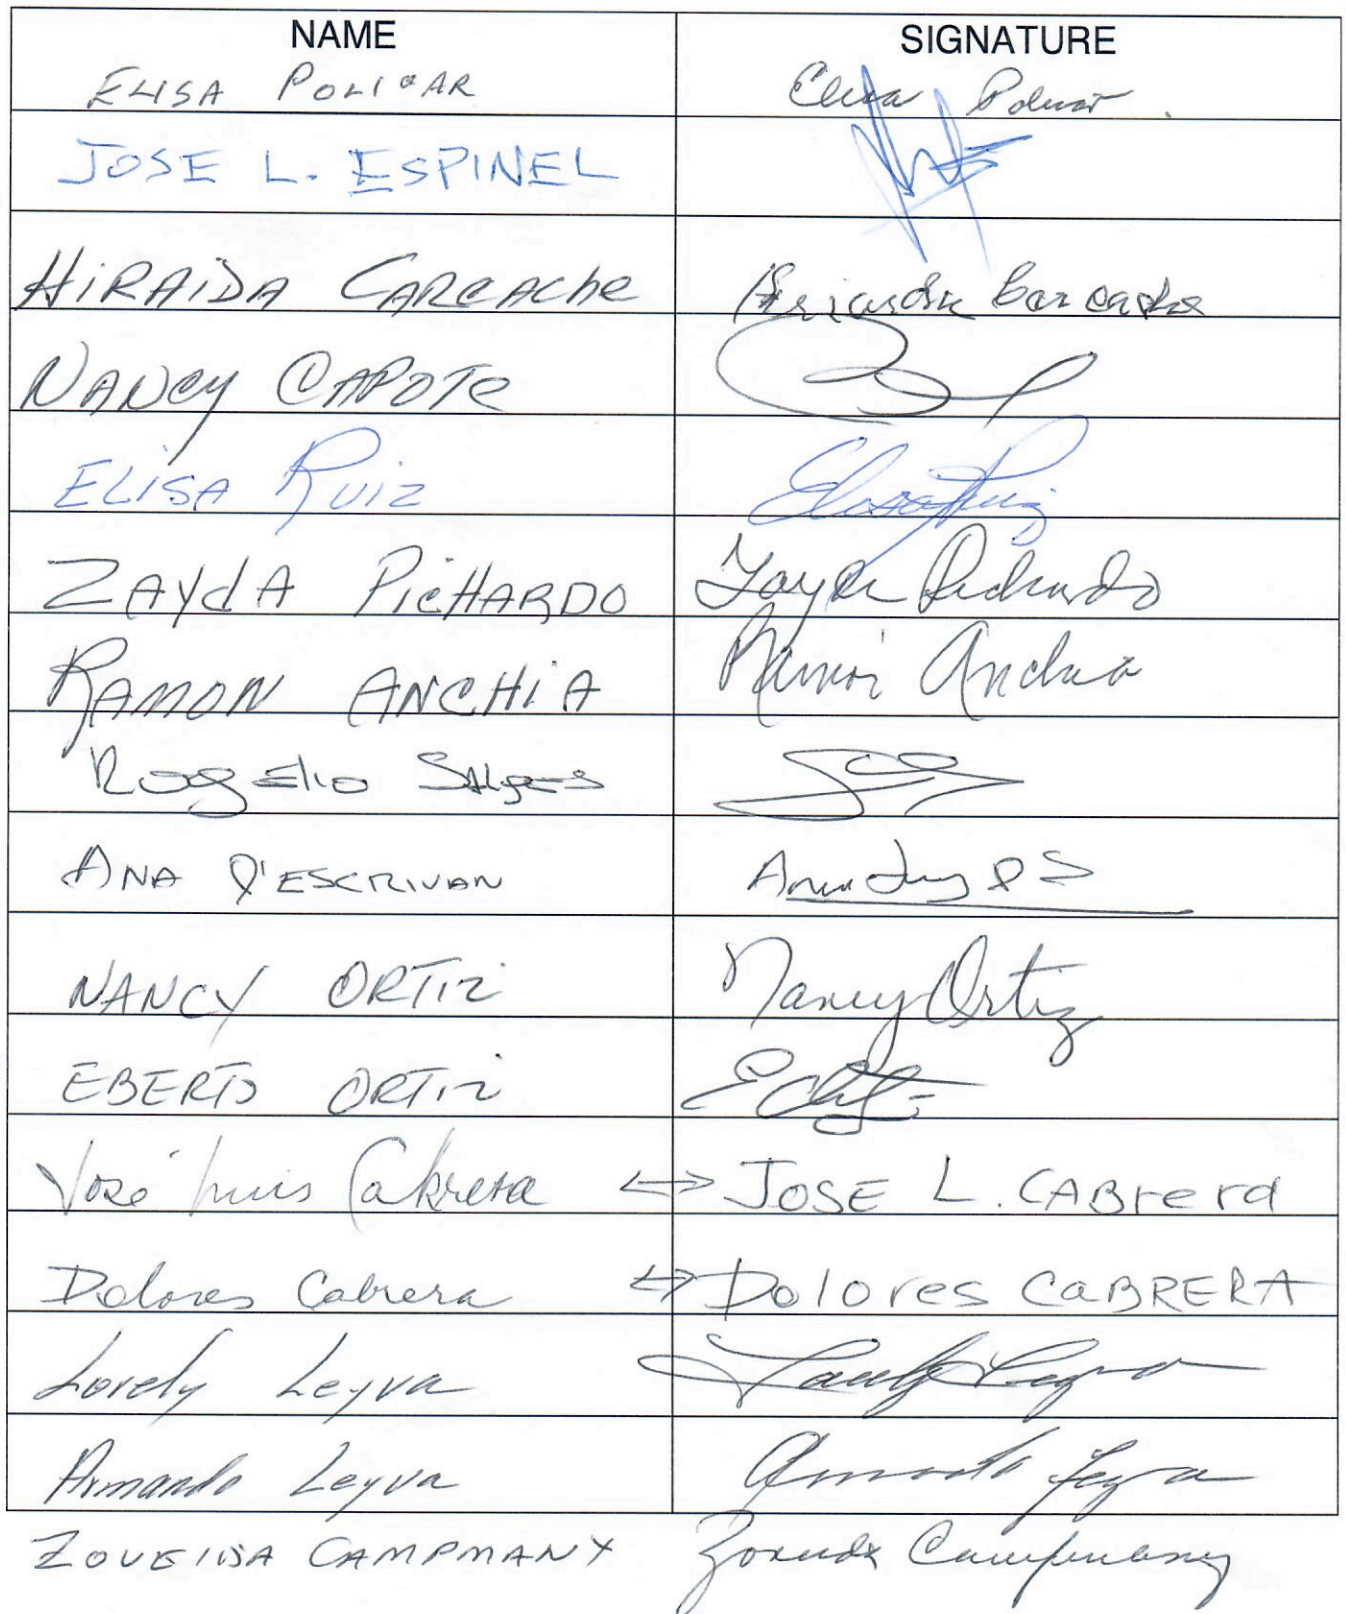 NAME SIGNATURE
ELISA POLICAR Elisa Policar
JOSE L. ESPINEL
HiRAiDA CARCAChe
NANCY CAPOTe
ELiSA Ruiz Elisa Ruiz
ZAYdA PicHARDO Zayda Pichardo
RAMON ANCHiA Ramon Anchia
RogElio
ANA D'ESCRIVAN Ana
NANCY ORTIZ Nancy Ortiz
EBERTO ORTIZ
José Luis Cabrera <-> JOSE L. CABrera
Dolores Cabrera <-> Dolores CaBRERA
Lovely Leyva Leyva
Armando Leyva Armando Leyva
CAMPMANY Campmany